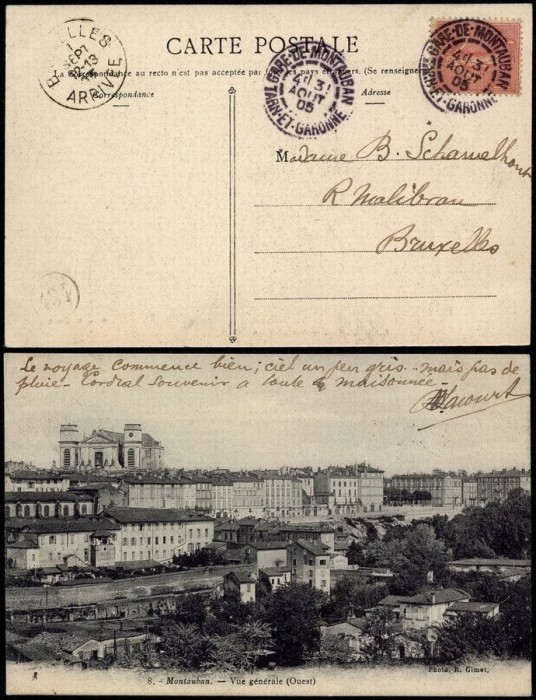 CARTE POSTALE
La Correspondance au recto n'est pas acceptée par tous les pays étrangers. (Se renseigner
Correspondance
Adresse
ARRIVÉE
SEPT
GARE-DE-MONTAUBAN
31
AOUT
05
TARN-ET-GARONNE
GARE-DE-MONTAUBAN
31
AOUT
05
TARN-ET-GARONNE
Madame B. Schamelhout
R Malibran
Bruxelles
Le voyage commence bien; ciel un peu gris - mais pas de
pluie - Cordial souvenir à toute la maisonnée -
8. - Montauban. — Vue générale (Ouest)
Photo. E. Gimet.